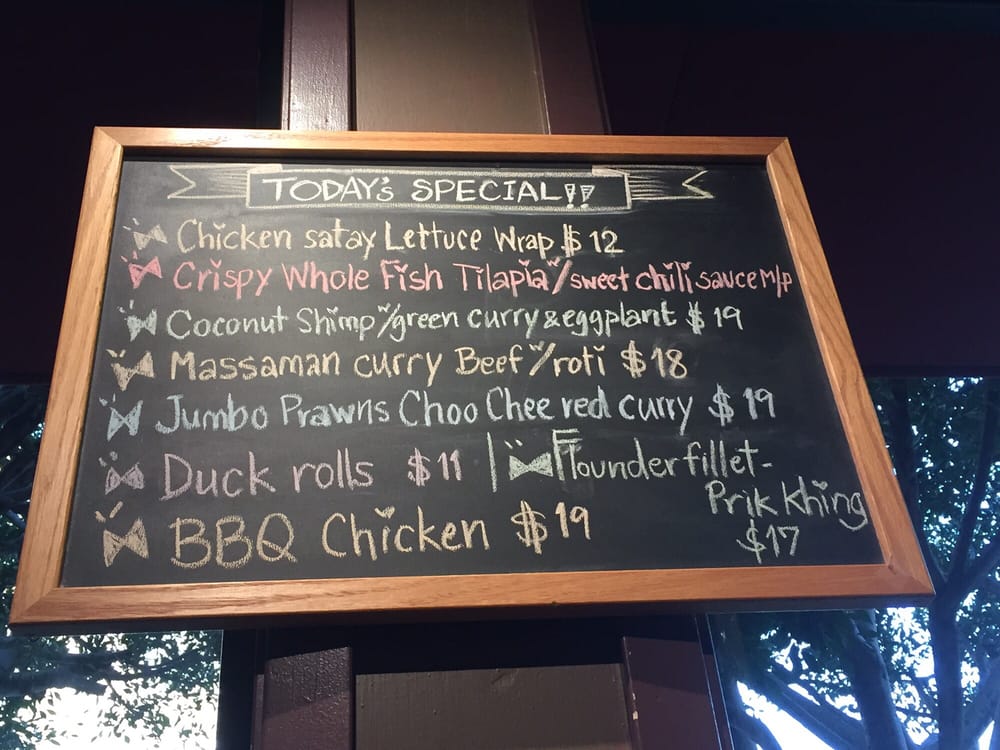 TODAY's SPECIAL!!
Chicken satay Lettuce Wrap $12
Crispy Whole Fish Tilapia w/sweet chili sauce M/P
Coconut Shimp w/green curry & eggplant $19
Massaman curry Beef w/roti $18
Jumbo Prawns Choo Chee red curry $19
Duck rolls $11 | Flounder fillet-
Prik Khing
$17
BBQ Chicken $19